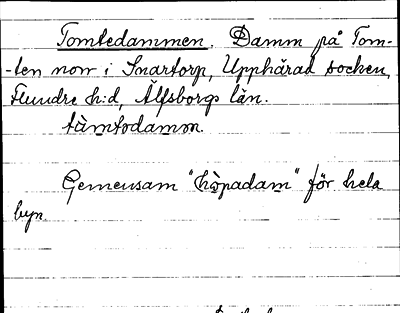 Tomtedammen. Damm på Tom-
-ten norr i Snartorp, Upphärad socken,
Flundre h:d, Älfsborgs län.
tåmtodamm.
Gemensam "höpadam" för hela
byn